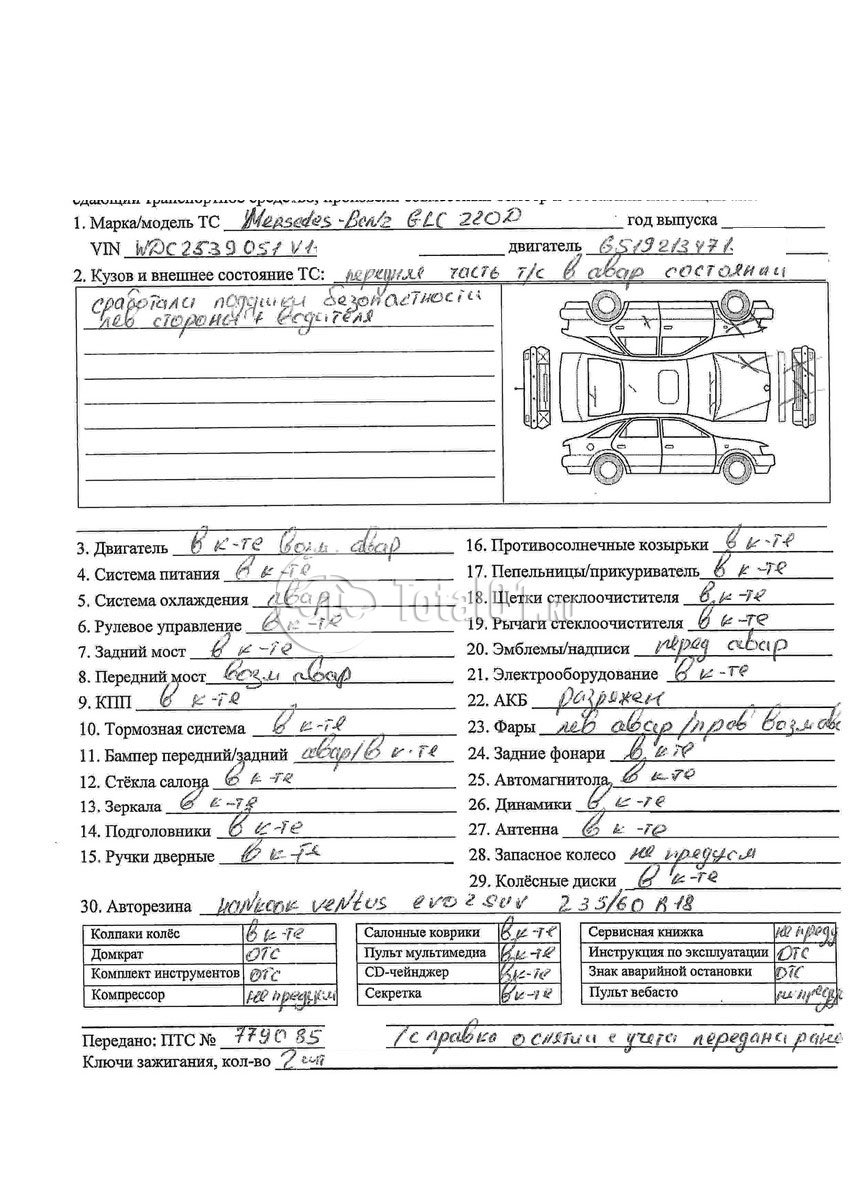 1. Марка/модель ТС Mersedes-Benz GLC 220D год выпуска
VIN WDC2539051V1 двигатель 6519213471
2. Кузов и внешнее состояние ТС: передняя часть т/с в авар состоянии
сработали подушки безопастности
лев стороны + водителя
3. Двигатель в к-те возм. авар
4. Система питания в к-те
5. Система охлаждения авар
6. Рулевое управление в к-те
7. Задний мост в к-те
8. Передний мост возм авар
9. КПП в к-те
10. Тормозная система в к-те
11. Бампер передний/задний авар/в к-те
12. Стёкла салона в к-те
13. Зеркала в к-те
14. Подголовники в к-те
15. Ручки дверные в к-те
16. Противосолнечные козырьки в к-те
17. Пепельницы/прикуриватель в к-те
18. Щетки стеклоочистителя в к-те
19. Рычаги стеклоочистителя в к-те
20. Эмблемы/надписи перед авар
21. Электрооборудование в к-те
22. АКБ разряжен
23. Фары лев авар/прав возм ав
24. Задние фонари в к-те
25. Автомагнитола в к-те
26. Динамики в к-те
27. Антенна в к-те
28. Запасное колесо не предусм
29. Колёсные диски в к-те
Total01.ru
30. Авторезина Hankook ventus evo2 suv 235/60 R18
Колпаки колёс в к-те
Домкрат ОТС
Комплект инструментов ОТС
Компрессор не предусм
Салонные коврики в к-те
Пульт мультимедиа в к-те
CD-чейнджер в к-те
Секретка в к-те
Сервисная книжка не преду
Инструкция по эксплуатации ОТС
Знак аварийной остановки ОТС
Пульт вебасто не предус
Передано: ПТС № 779085 /справка о снятии с учета передана ране
Ключи зажигания, кол-во 2 шт